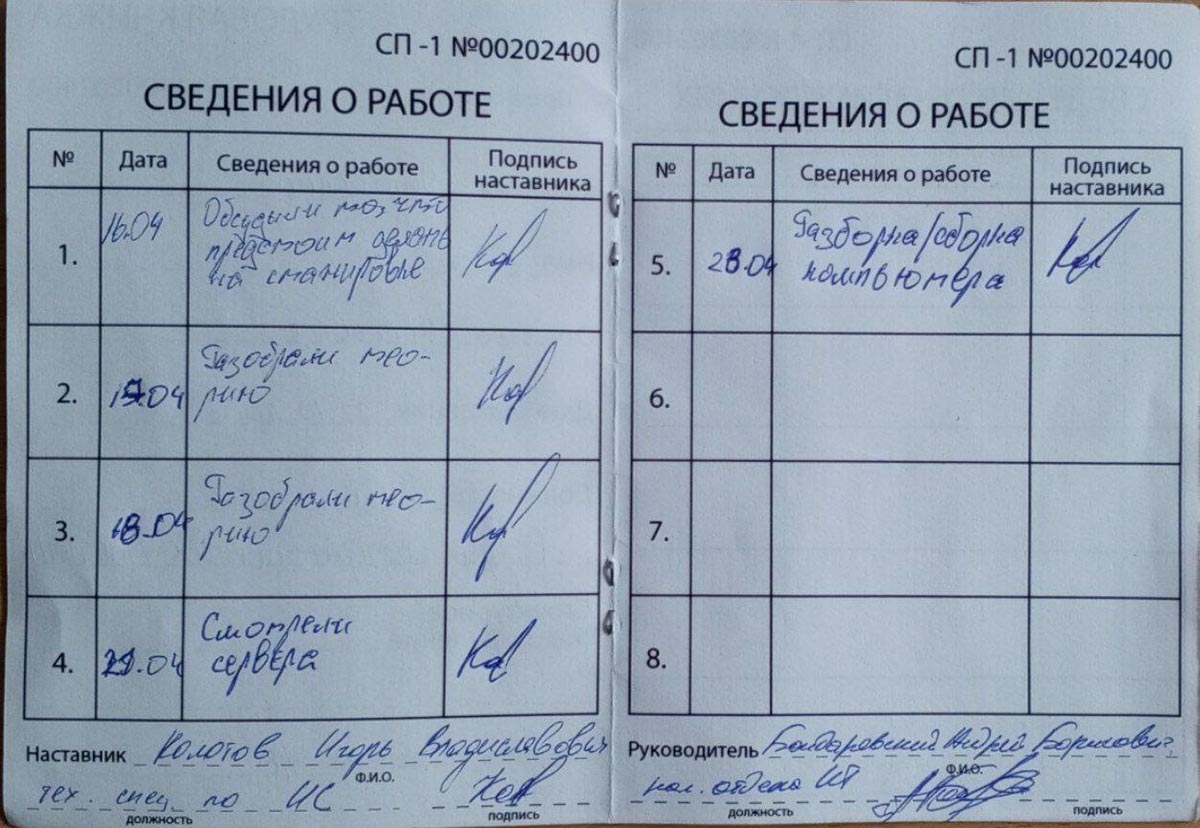 СП -1 №00202400
СВЕДЕНИЯ О РАБОТЕ
№ Дата Сведения о работе Подпись наставника
1. 16.04 Обсудили то, что
предстоит делать
на стажировке
2. .04 Разобрали тео-
рию
3. 18.04 Разобрали тео-
рию
4. .04 Смотрели
сервера
Наставник Колотов Игорь Владиславович
Ф.И.О.
тех. спец по ИС
должность подпись
СП -1 №00202400
СВЕДЕНИЯ О РАБОТЕ
№ Дата Сведения о работе Подпись наставника
5. 23.04 Разборка/сборка
компьютера
6.
7.
8.
Руководитель Андрей Борисович
Ф.И.О.
нач. отдела ИТ
должность подпись